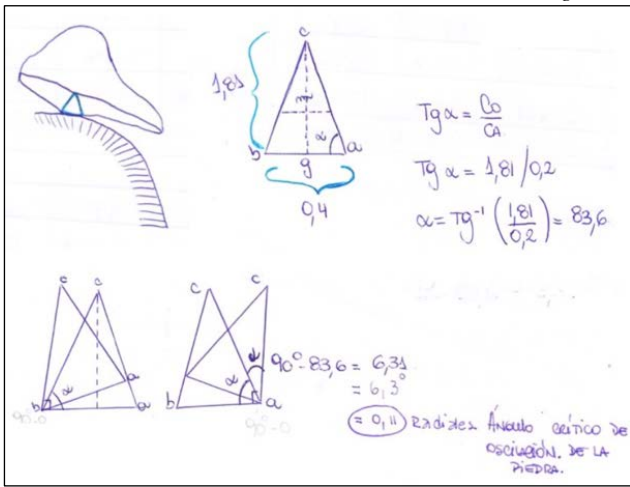 c
1,81
m
α
b
a
g
0,4
Tg α = Co/CA
Tg α = 1,81/0,2
α = Tg⁻¹ (1,81/0,2) = 83,6
c c
α
a
b a
c c
α
b a
90° - 83,6 = 6,31
= 6,3°
= 0,11 Radianes Ángulo crítico de
oscilación. DE LA
PIEDRA.